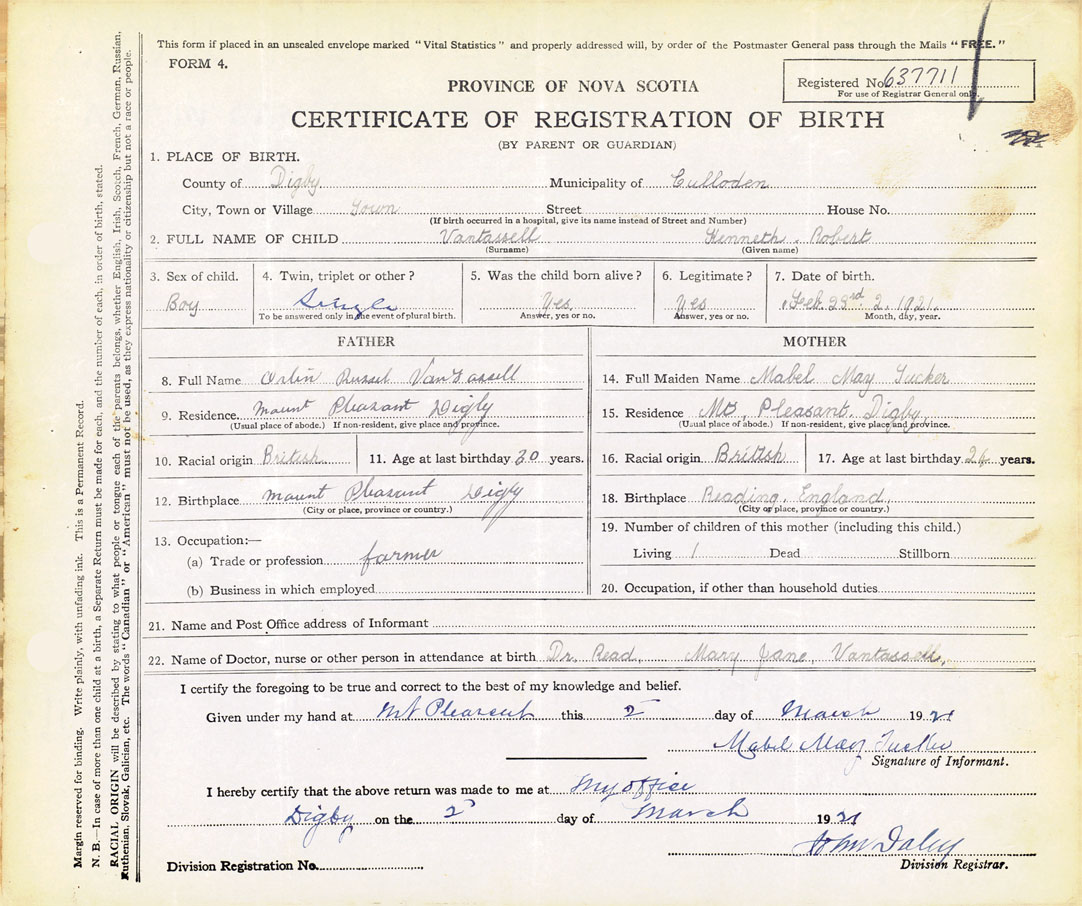 This form if placed in an unsealed envelope marked "Vital Statistics" and properly addressed will, by order of the Postmaster General pass through the Mails "FREE."
FORM 4.
Registered No. 637711
For use of Registrar General only.
PROVINCE OF NOVA SCOTIA
CERTIFICATE OF REGISTRATION OF BIRTH
(BY PARENT OR GUARDIAN)
1. PLACE OF BIRTH.
County of Digby Municipality of Culloden
City, Town or Village Town Street House No.
(If birth occurred in a hospital, give its name instead of Street and Number)
2. FULL NAME OF CHILD Vantassell Kenneth Robert
(Surname) (Given name)
3. Sex of child. 4. Twin, triplet or other? 5. Was the child born alive? 6. Legitimate? 7. Date of birth.
Boy Single Yes Yes Feb. 23rd 2, 1921.
To be answered only in the event of plural birth. Answer, yes or no. Answer, yes or no. Month, day, year.
FATHER
8. Full Name Orlin Russel VanTassell
9. Residence. Mount Pleasant Digby
(Usual place of abode.) If non-resident, give place and province.
10. Racial origin British 11. Age at last birthday 30 years.
12. Birthplace Mount Pleasant Digby
(City or place, province or country.)
13. Occupation:—
(a) Trade or profession farmer
(b) Business in which employed
MOTHER
14. Full Maiden Name Mabel May Tucker
15. Residence Mt. Pleasant. Digby.
(Usual place of abode.) If non-resident, give place and province.
16. Racial origin British 17. Age at last birthday years.
18. Birthplace Reading. England.
(City or place, province or country.)
19. Number of children of this mother (including this child.)
Living 1 Dead Stillborn
20. Occupation, if other than household duties
21. Name and Post Office address of Informant
22. Name of Doctor, nurse or other person in attendance at birth Dr. Read, Mary Jane, Vantassell,
I certify the foregoing to be true and correct to the best of my knowledge and belief.
Given under my hand at Mt Pleasant this 2 day of March 1921
Mabel May Tucker
Signature of Informant.
I hereby certify that the above return was made to me at My office
Digby on the 2 day of March 1921
John Daley
Division Registrar.
Division Registration No.
Margin reserved for binding. Write plainly, with unfading ink. This is a Permanent Record.
N. B.—In case of more than one child at a birth, a Separate Return must be made for each, and the number of each, in order of birth, stated.
RACIAL ORIGIN will be described by stating to what people or tongue each of the parents belongs, whether English, Irish, Scotch, French, German, Russian,
Ruthenian, Slovak, Galician, etc. The words "Canadian" or "American" must not be used, as they express nationality or citizenship but not a race or people.